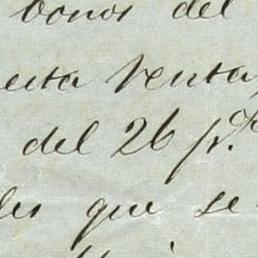 bonos del
esta venta,
del 26 p.%
les que se